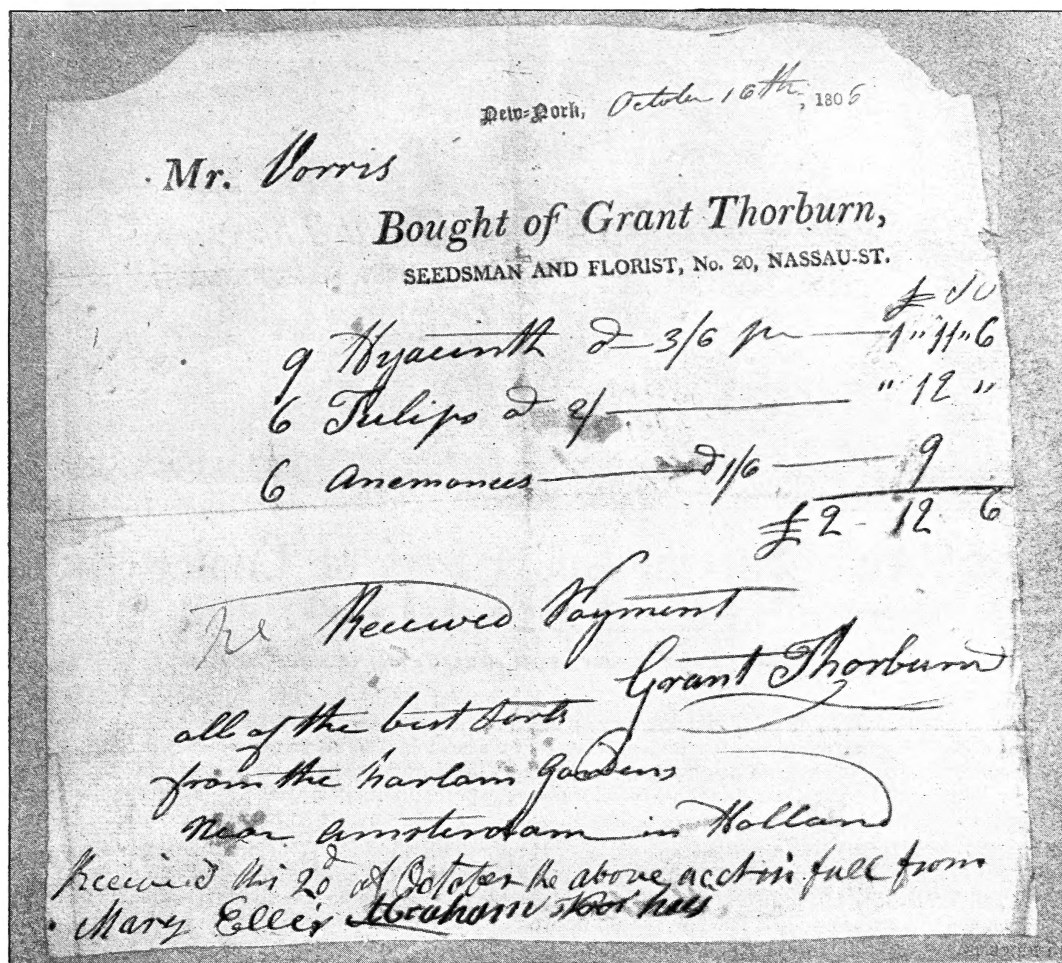 New-York, October 16th, 1806
Mr. Vorris
Bought of Grant Thorburn,
SEEDSMAN AND FLORIST, No. 20, NASSAU-ST.
£
9 Hyacinth @ 3/6 pr 1 " 11 " 6
6 Tulips @ 2/ " 12 "
6 Anemonees @ 1/6 9
£ 2 - 12 6
Received Payment
Grant Thorburn
all of the best Sorts
from the harlam Gardens
near amsterdam in Holland
Received this 2d of October the above acct in full from
Mary Ellis Abraham